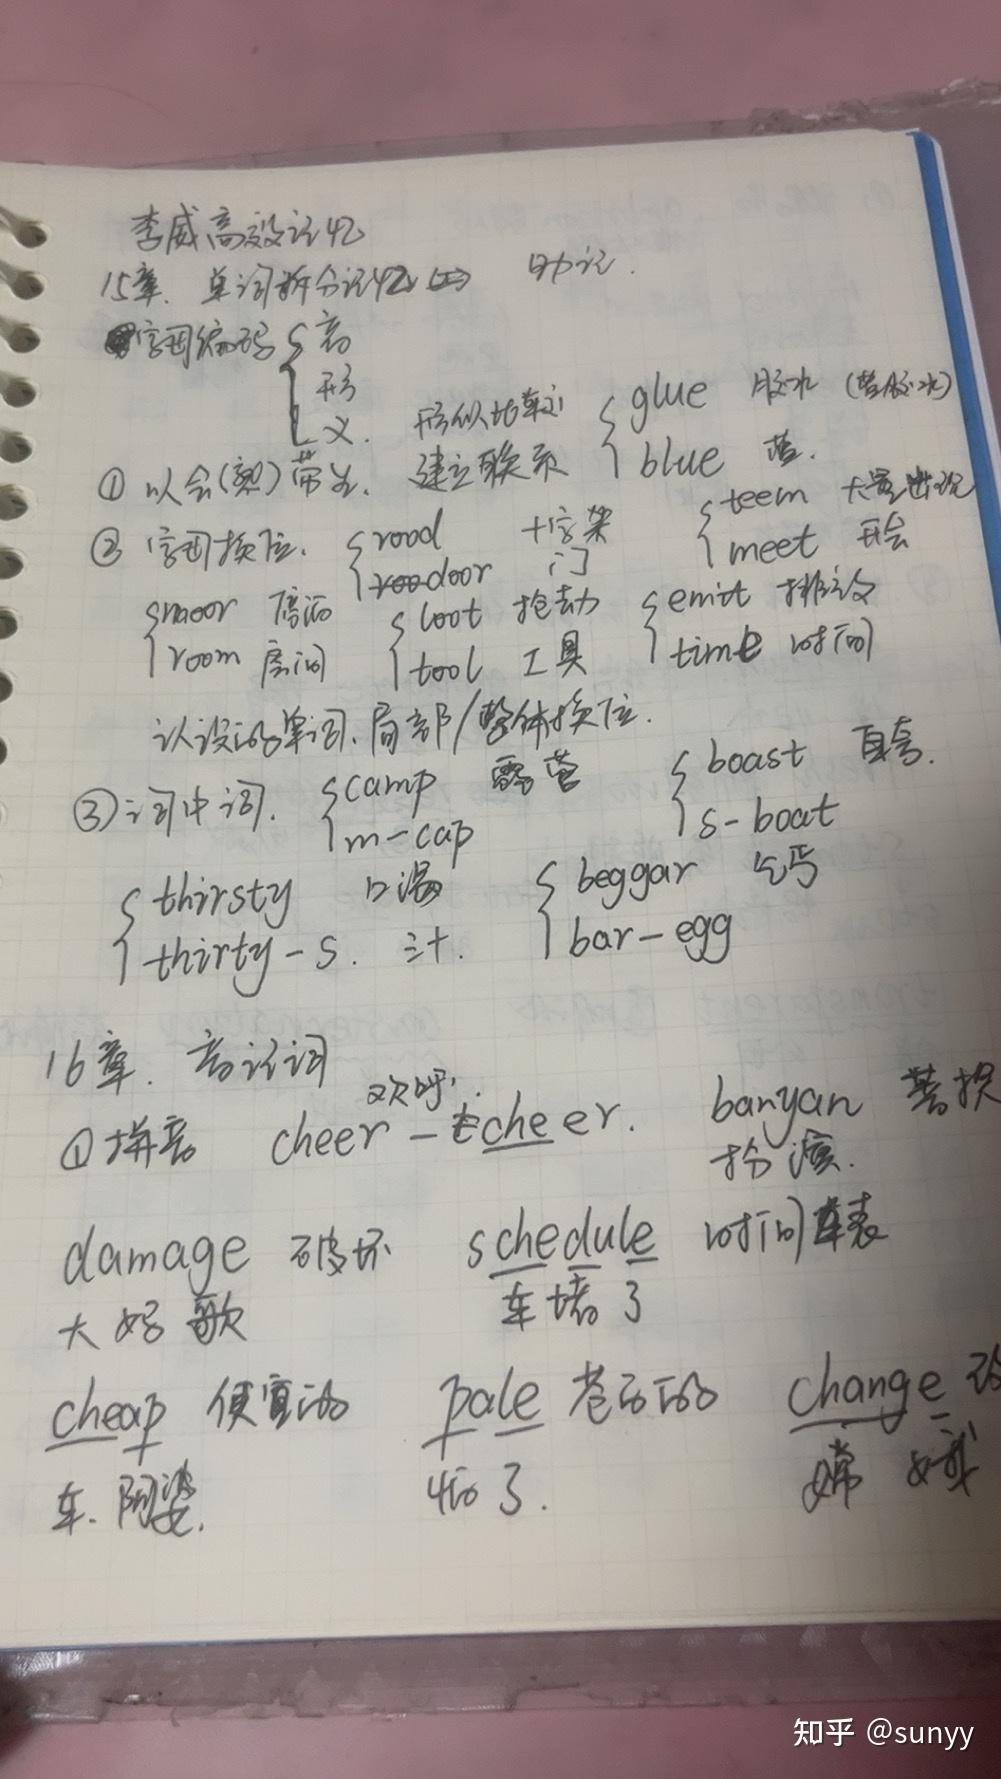 李威高效记忆
15章. 单词拆分记忆四 助记.
字母编码 { 音
形
义. 形似比较 { glue 胶水 (蓝胶水)
① 以会(熟)带生. 建立联系 blue 蓝.
② 字母换位. { rood 十字架 { teem 大量出现
door 门 meet 开会
{ moor 停泊 { loot 抢劫 { emit 排放
room 房间 tool 工具 time 时间
认识的单词、局部/整体换位.
③ 词中词. { camp 露营 { boast 自夸.
m-cap s-boat
{ thirsty 口渴 { beggar 乞丐
thirty-s. 三十. bar-egg
16章. 音记词
欢呼.
① 拼音 cheer - cheer. banyan 菩提
扮演.
damage 破坏 schedule 时间表
大妈歌 车堵了
cheap 便宜的 pale 苍白的 change 改
车.阿婆. 怕了. 嫦娥
知乎 @sunyy